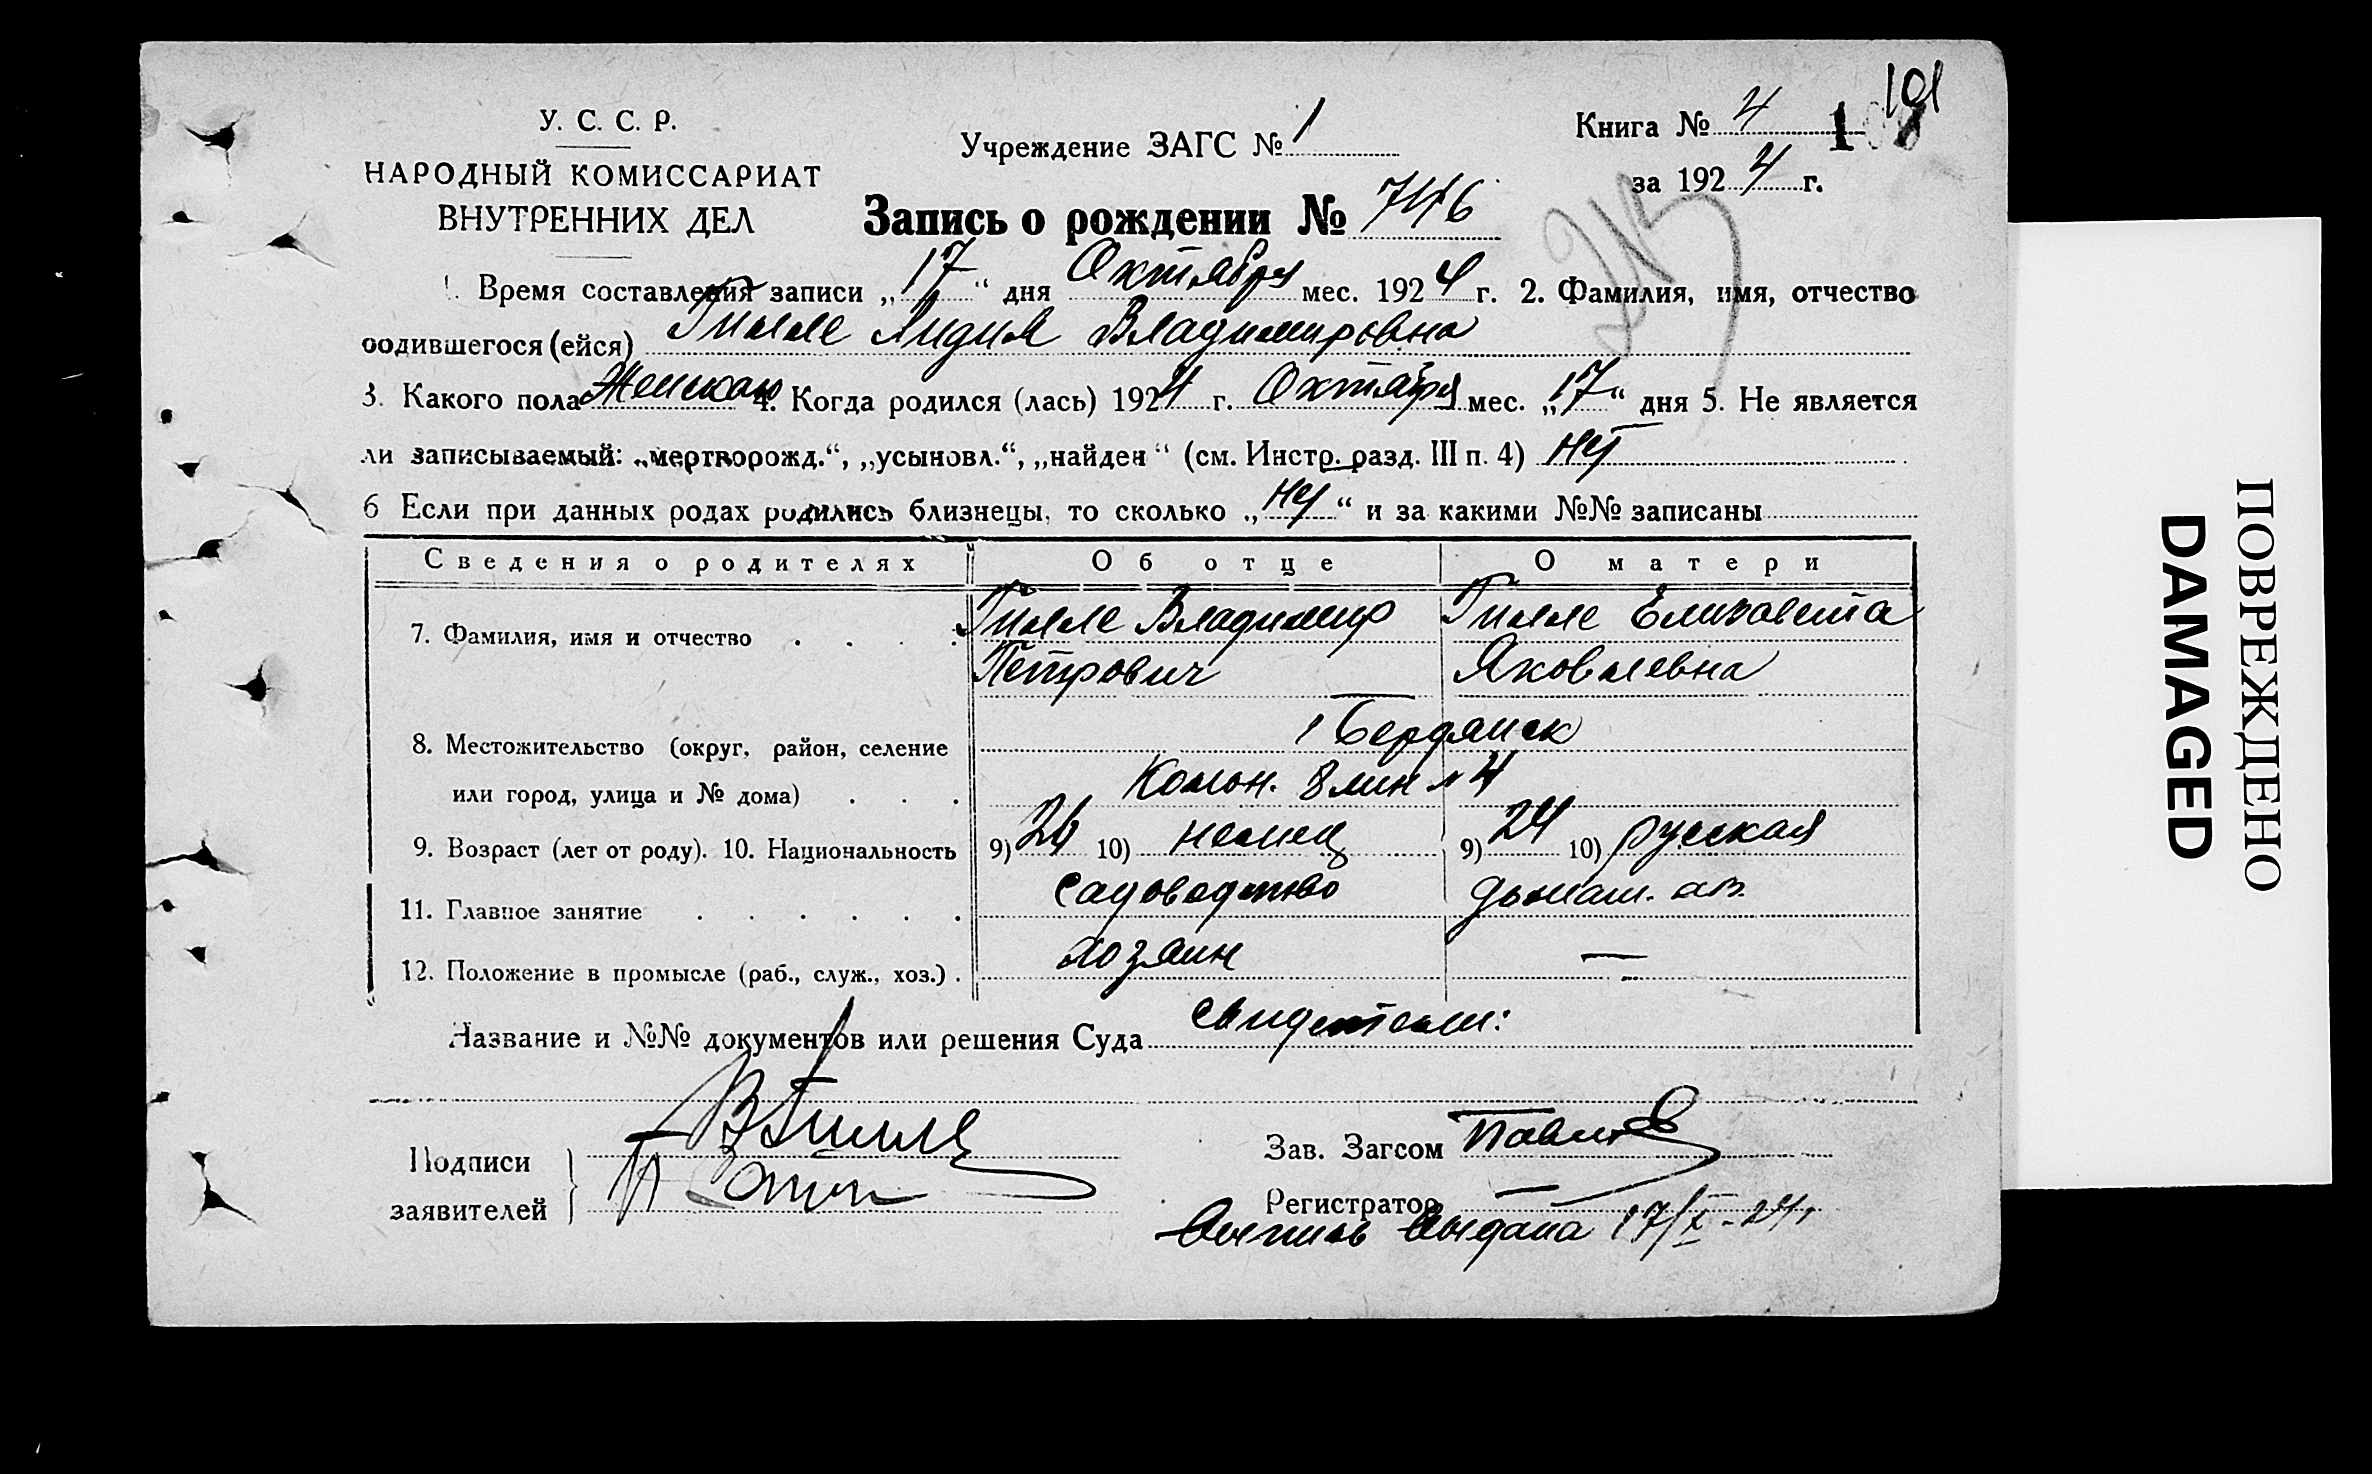 101
У. С. С. Р.
НАРОДНЫЙ КОМИССАРИАТ
ВНУТРЕННИХ ДЕЛ
Учреждение ЗАГС № 1
Книга № 4
за 1924 г.
Запись о рождении № 746
1. Время составления записи „17“ дня Октября мес. 1924 г. 2. Фамилия, имя, отчество
родившегося (ейся) Гилле Лидия Владимировна
3. Какого пола Женского 4. Когда родился (лась) 1924 г. Октября мес. „17“ дня 5. Не является
ли записываемый: „мертворожд.“, „усыновл.“, „найден“ (см. Инстр. разд. III п. 4) нет
6 Если при данных родах родились близнецы, то сколько „нет“ и за какими №№ записаны
Сведения о родителях Об отце О матери
7. Фамилия, имя и отчество Гилле Владимир Гилле Елизавета
Петрович Яковлевна
8. Местожительство (округ, район, селение Бердянск
или город, улица и № дома) Колон. 8 лин № 4
9. Возраст (лет от роду). 10. Национальность 9) 26 10) немец 9) 24 10) русская
11. Главное занятие садоводство домаш. хоз.
12. Положение в промысле (раб., служ., хоз.) хозяин —
Название и №№ документов или решения Суда свидетели:
Подписи
заявителей
ВГилле
Зав. Загсом
Регистратор —
Выпись выдана 17/X-24 г.
ПОВРЕЖДЕНО
DAMAGED